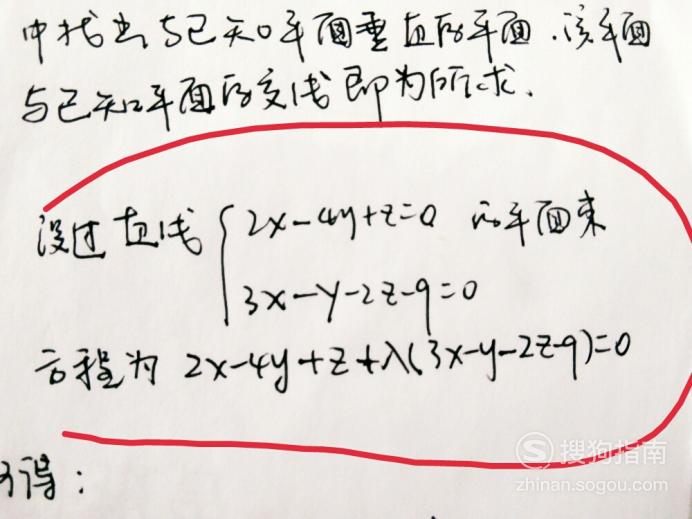 中找出与已知平面垂直的平面.该平面
与已知平面的交线即为所求.
设过直线 { 2x-4y+z=0 的平面束
3x-y-2z-9=0
方程为 2x-4y+z+λ(3x-y-2z-9)=0
得:
搜狗指南
zhinan.sogou.com